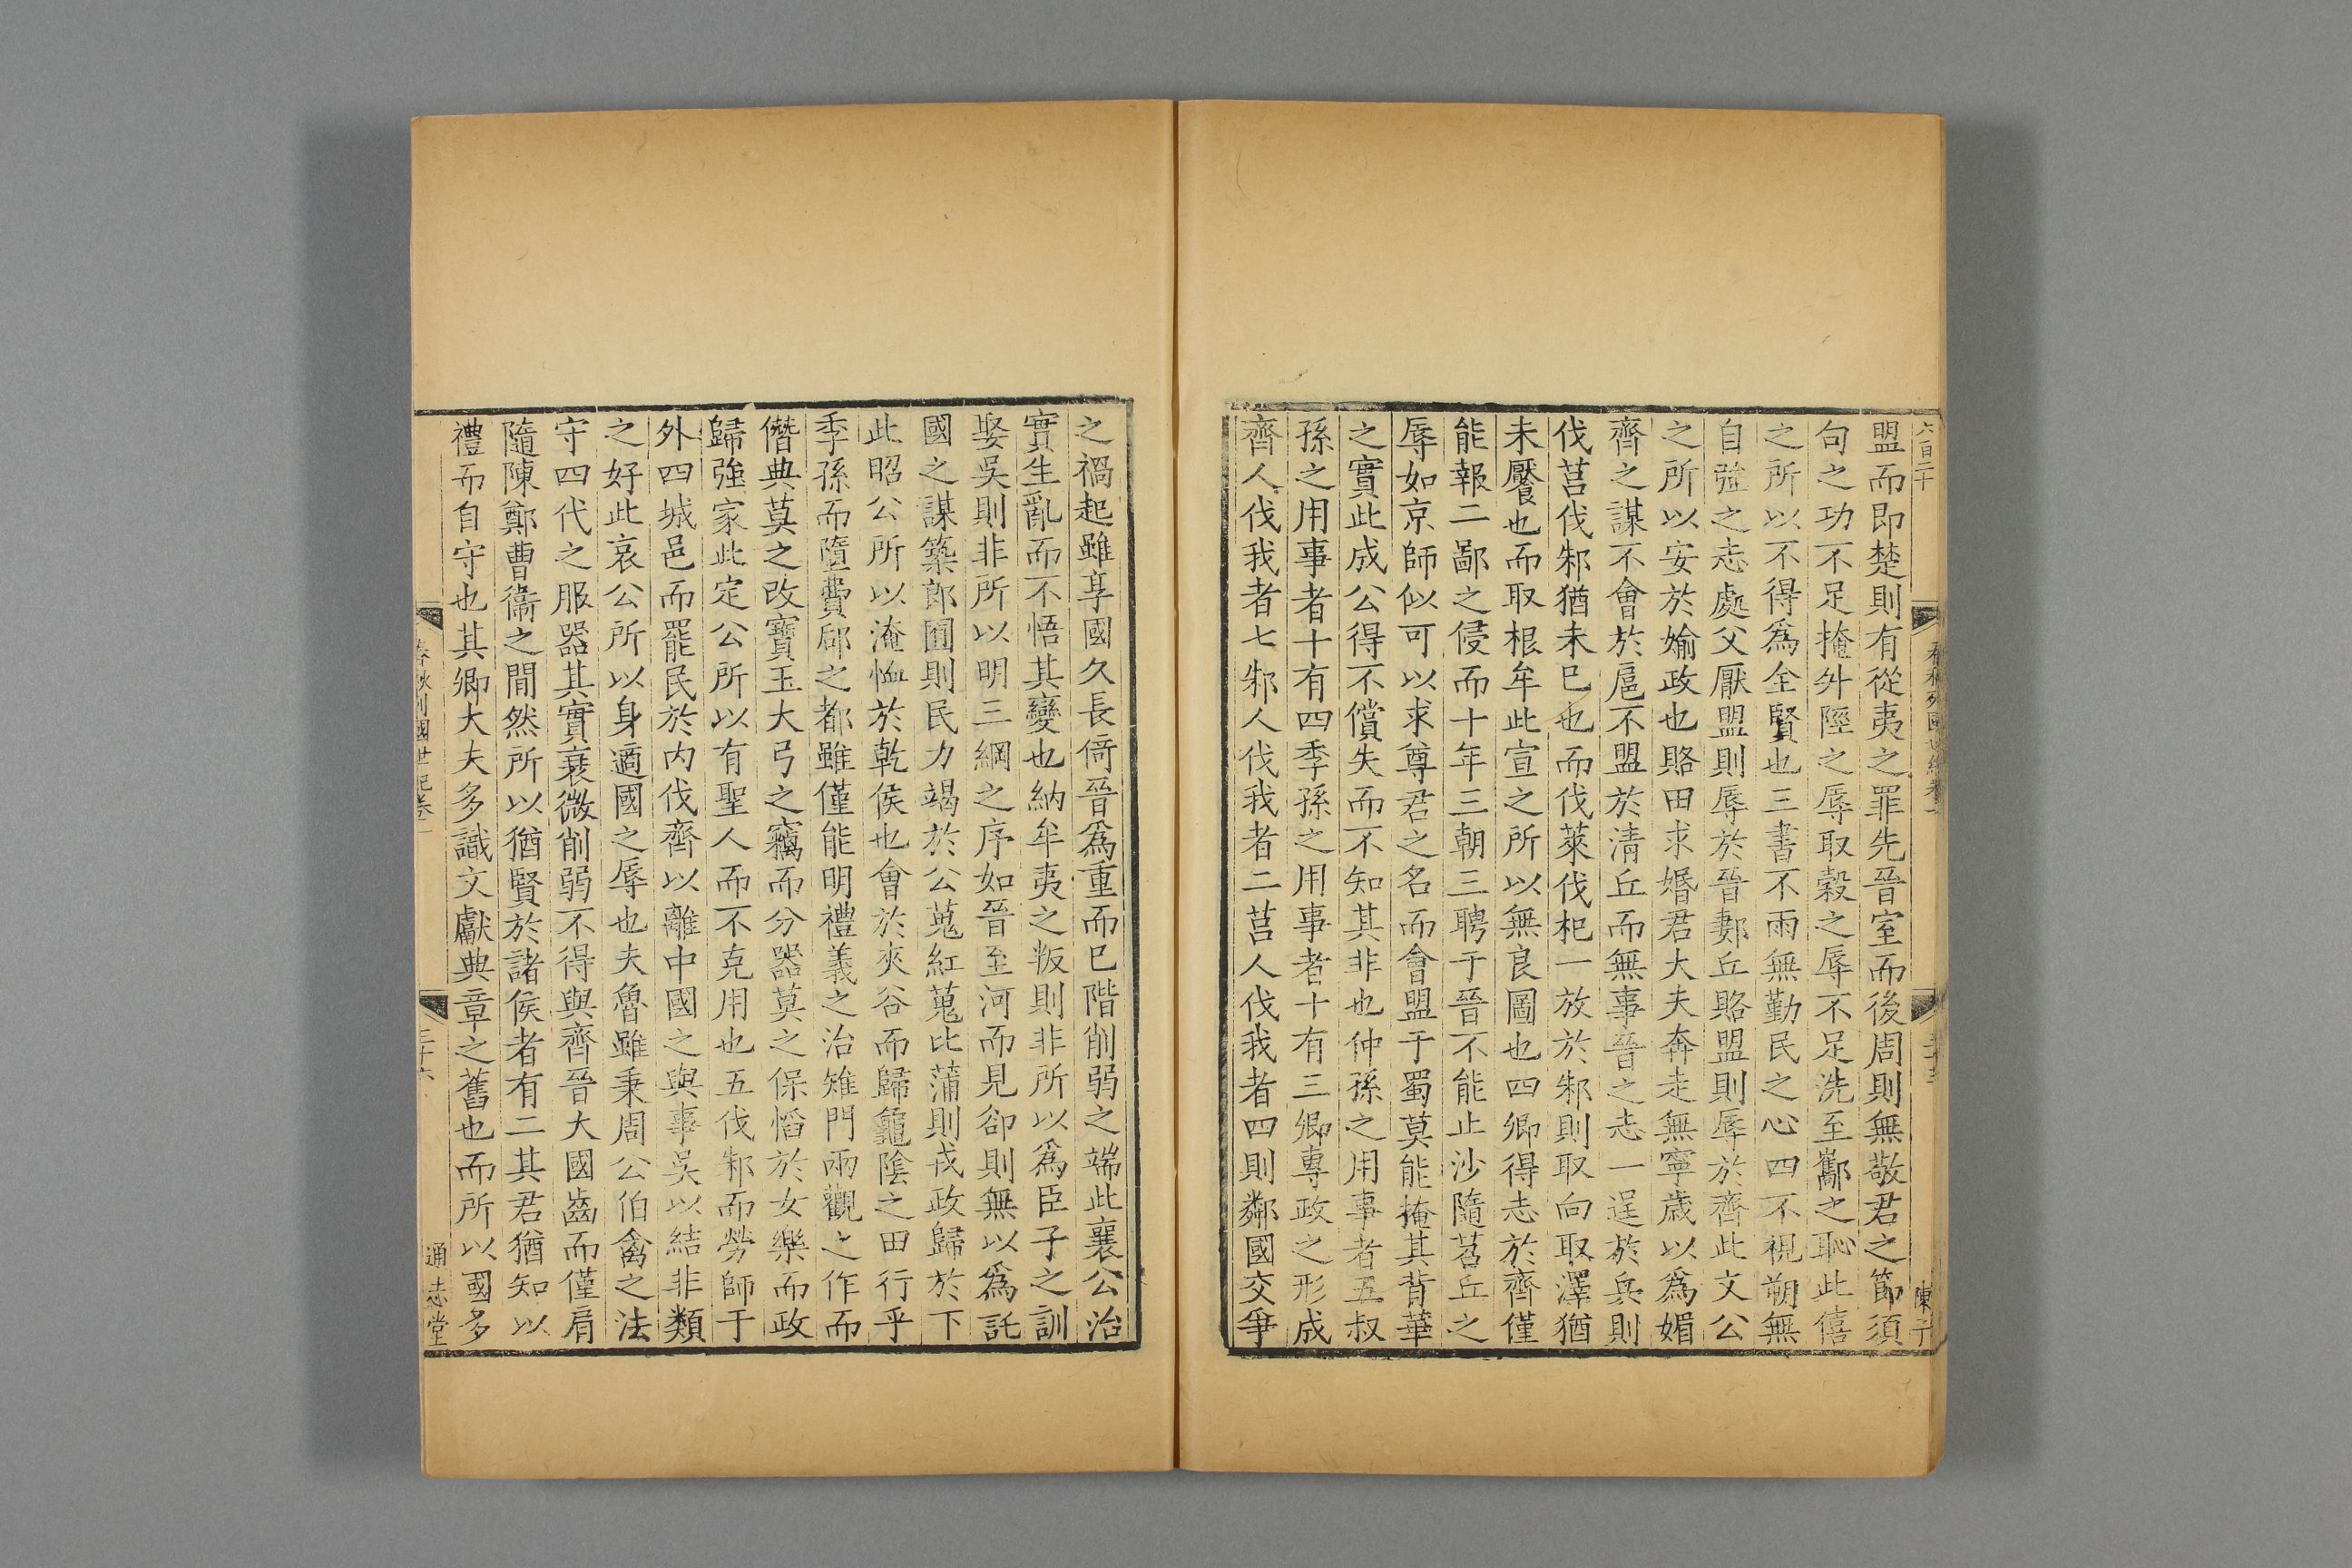 六百二十
陳子
盟而即楚則有從夷之罪先晉室而後周則無敬君之節須
句之功不足掩升陘之辱取穀之辱不足洗至酅之恥此僖
之所以不得爲全賢也三書不雨無勤民之心四不視朔無
自強之志處父厭盟則辱於晉郪丘賂盟則辱於齊此文公
之所以安於婾政也賂田求婚君大夫奔走無寧歲以爲媚
齊之謀不會於扈不盟於清丘而無事晉之志一逞於兵則
伐莒伐邾猶未巳也而伐萊伐杞一放於邾則取向取澤猶
未饜也而取根牟此宣之所以無良圖也四卿得志於齊僅
能報二鄙之侵而十年三朝三聘于晉不能止沙隨苕丘之
辱如京師似可以求尊君之名而會盟于蜀莫能掩其背華
之實此成公得不償失而不知其非也仲孫之用事者五叔
孫之用事者十有四季孫之用事者十有三卿專政之形成
齊人伐我者七邾人伐我者二莒人伐我者四則鄰國交爭
之禍起雖享國久長倚晉爲重而巳階削弱之端此襄公治
實生亂而不悟其變也納牟夷之叛則非所以爲臣子之訓
娶吳則非所以明三綱之序如晉至河而見卻則無以爲託
國之謀築郎囿則民力竭於公蒐紅蒐比蒲則戎政歸於下
此昭公所以淹恤於乾侯也會於夾谷而歸龜陰之田行乎
季孫而墮費郈之都雖僅能明禮義之治雉門兩觀之作而
僭典莫之改寶玉大弓之竊而分器莫之保慆於女樂而政
歸強家此定公所以有聖人而不克用也五伐邾而勞師于
外四城邑而罷民於内伐齊以離中國之與事吳以結非類
之好此哀公所以身適國之辱也夫魯雖秉周公伯禽之法
守四代之服器其實衰微削弱不得與齊晉大國齒而僅肩
隨陳鄭曹衞之間然所以猶賢於諸侯者有二其君猶知以
禮而自守也其卿大夫多識文獻典章之舊也而所以國多
春秋列國世紀卷一
三十六
通志堂